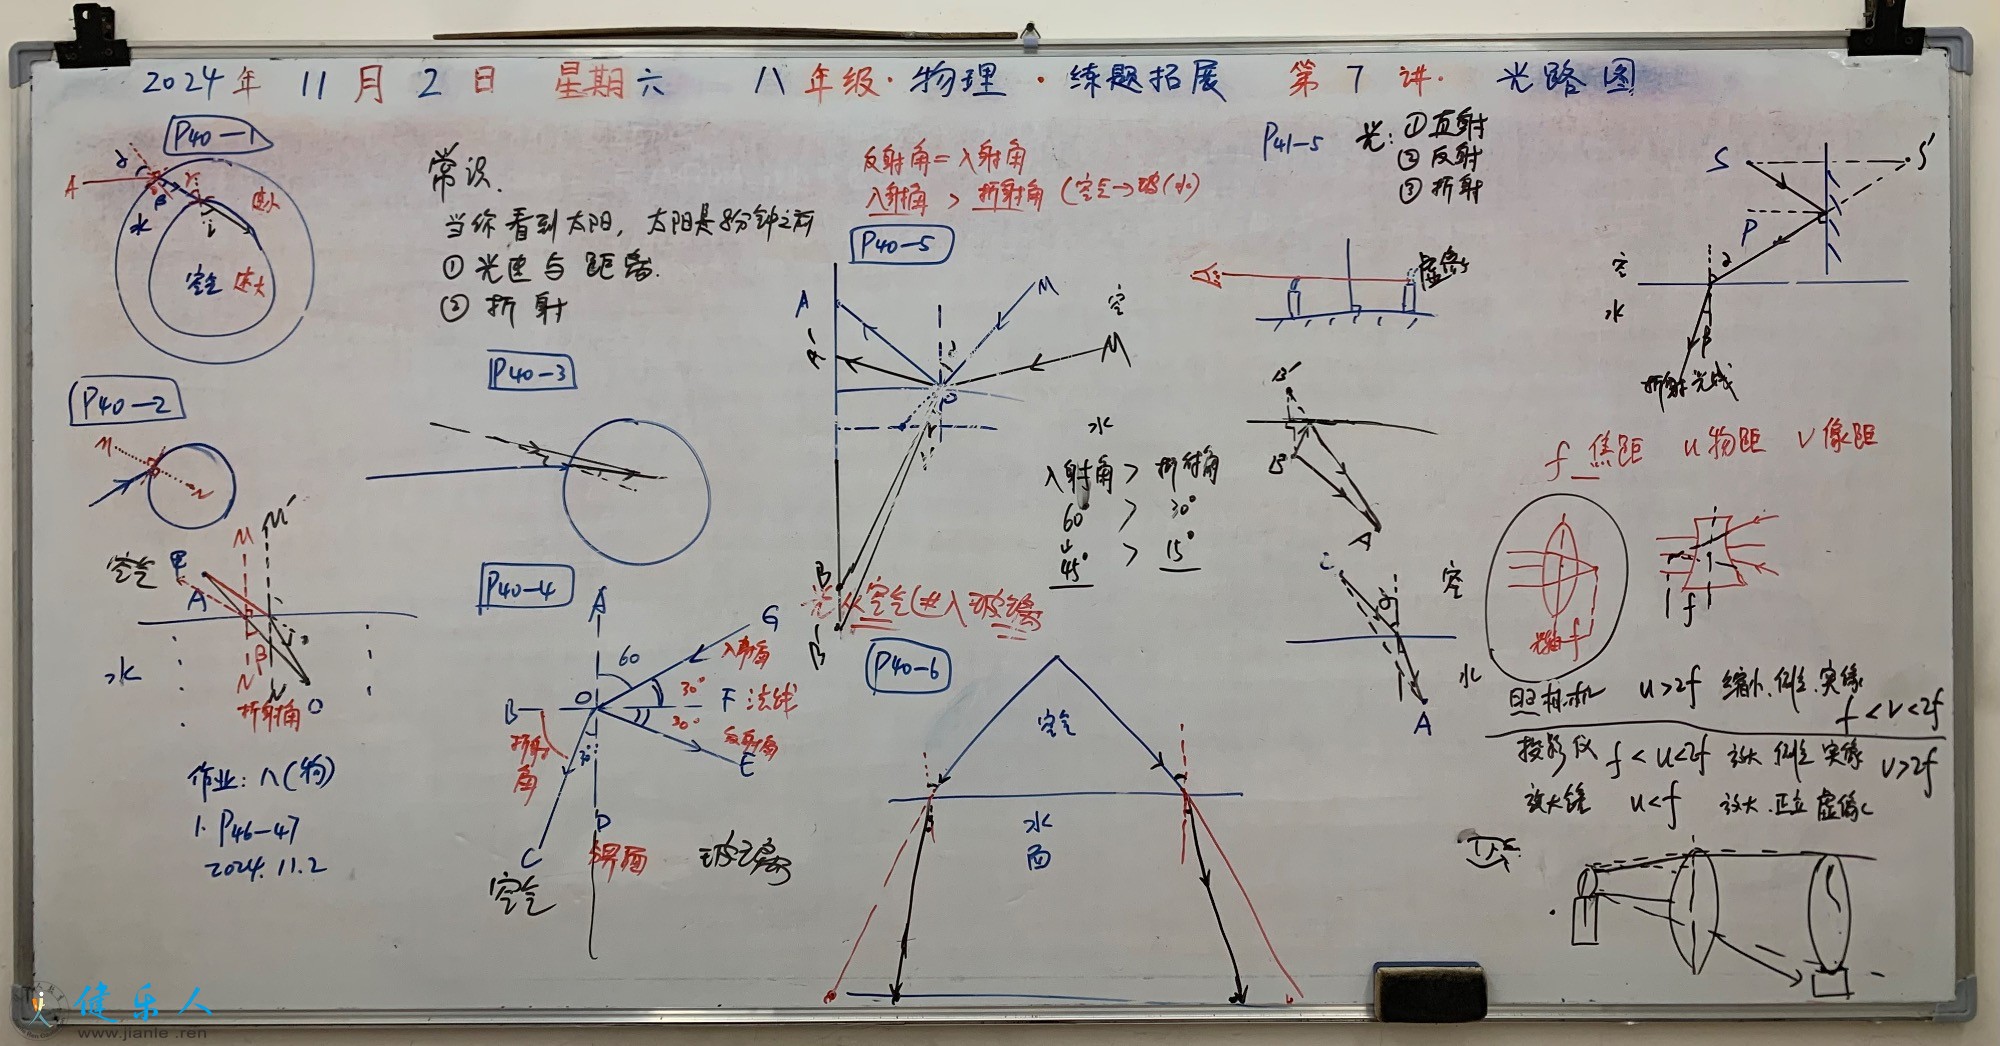 2024年 11月2日 星期六 八年级·物理·练题拓展 第7讲· 光路图
P40-1
A
α
r
β
水
i
速小
空气 速大
常识.
当你看到太阳，太阳是8分钟之前
① 光速与距离.
② 折射
反射角=入射角
入射角 > 折射角 (空气→玻(水)
P40-5
A
A'
M
M
空
水
B
B'
入射角 > 折射角
60° > 30°
45° > 15°
光从空气(进入玻璃
P41-5 光: ①直射
② 反射
③ 折射
虚像
S
S'
P
空
水
α
β
折射光线
P40-2
M
N
空气
水
M
M'
A
β
N
N'
O
折射角
作业: 八(物)
1. P46-47
2024.11.2
P40-3
P40-4
A
G
60
入射角
O
30°
F 法线
30°
反射角
E
B
折射角
30°
C
D
界面
玻璃
空气
P40-6
空气
水
面
B'
B
A
空
水
A
f 焦距 u 物距 v 像距
f
f
照相机 u>2f 缩小.倒立.实像
f<v<2f
投影仪 f<u<2f 放大 倒立 实像 v>2f
放大镜 u<f 放大.正立 虚像
健乐人
www.jianle.ren